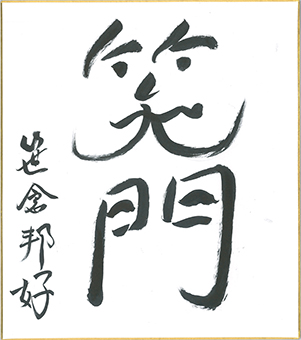 笑門
笹倉邦好